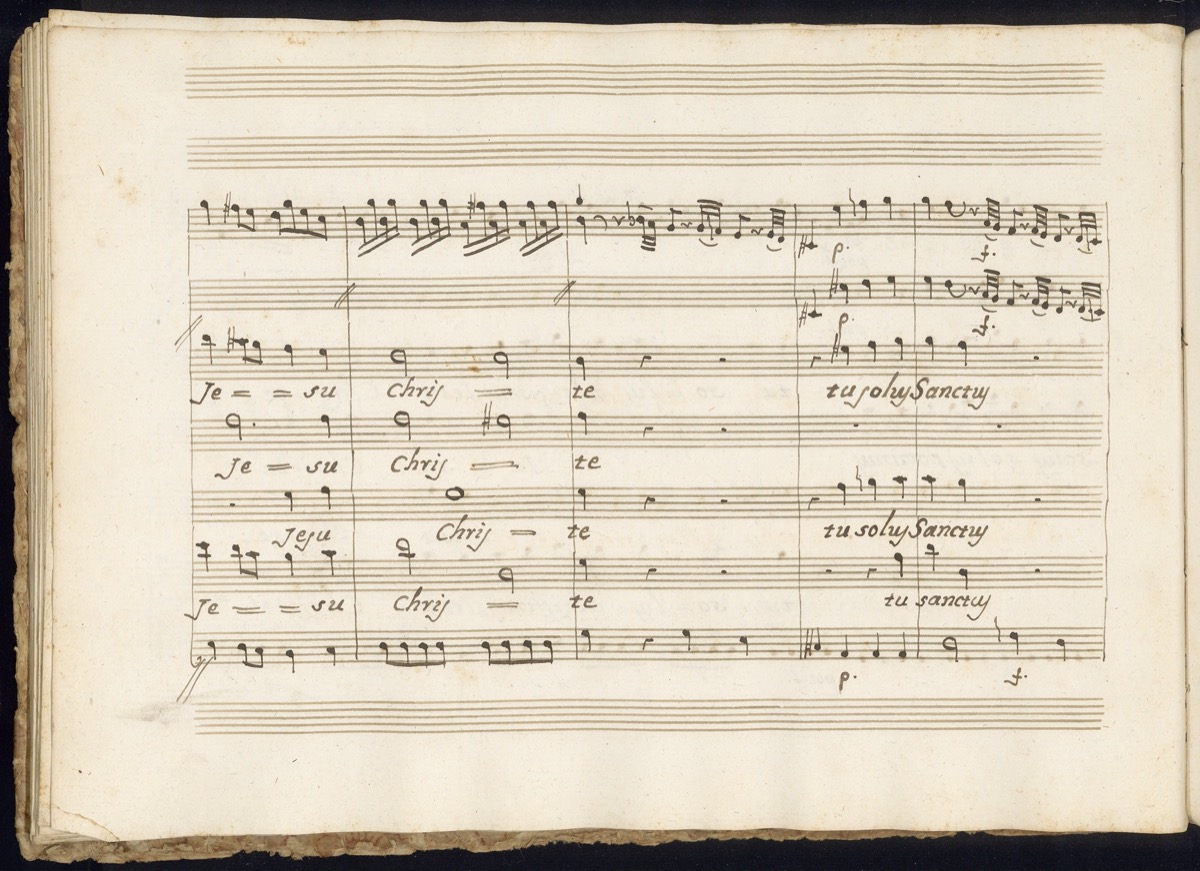 p. f.
p. f.
Je = = su Chris = te tu solus Sanctus
Je = su Chris = te
Jesu Chris = te tu solus Sanctus
Je = = su Chris = te tu sanctus
p. f.